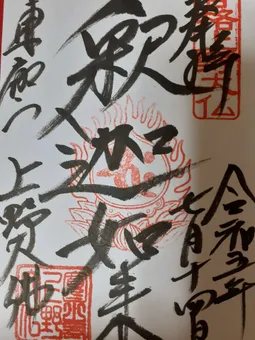 奉拝
令和五年
七月十四日
釈迦如来
東叡山 上野大仏